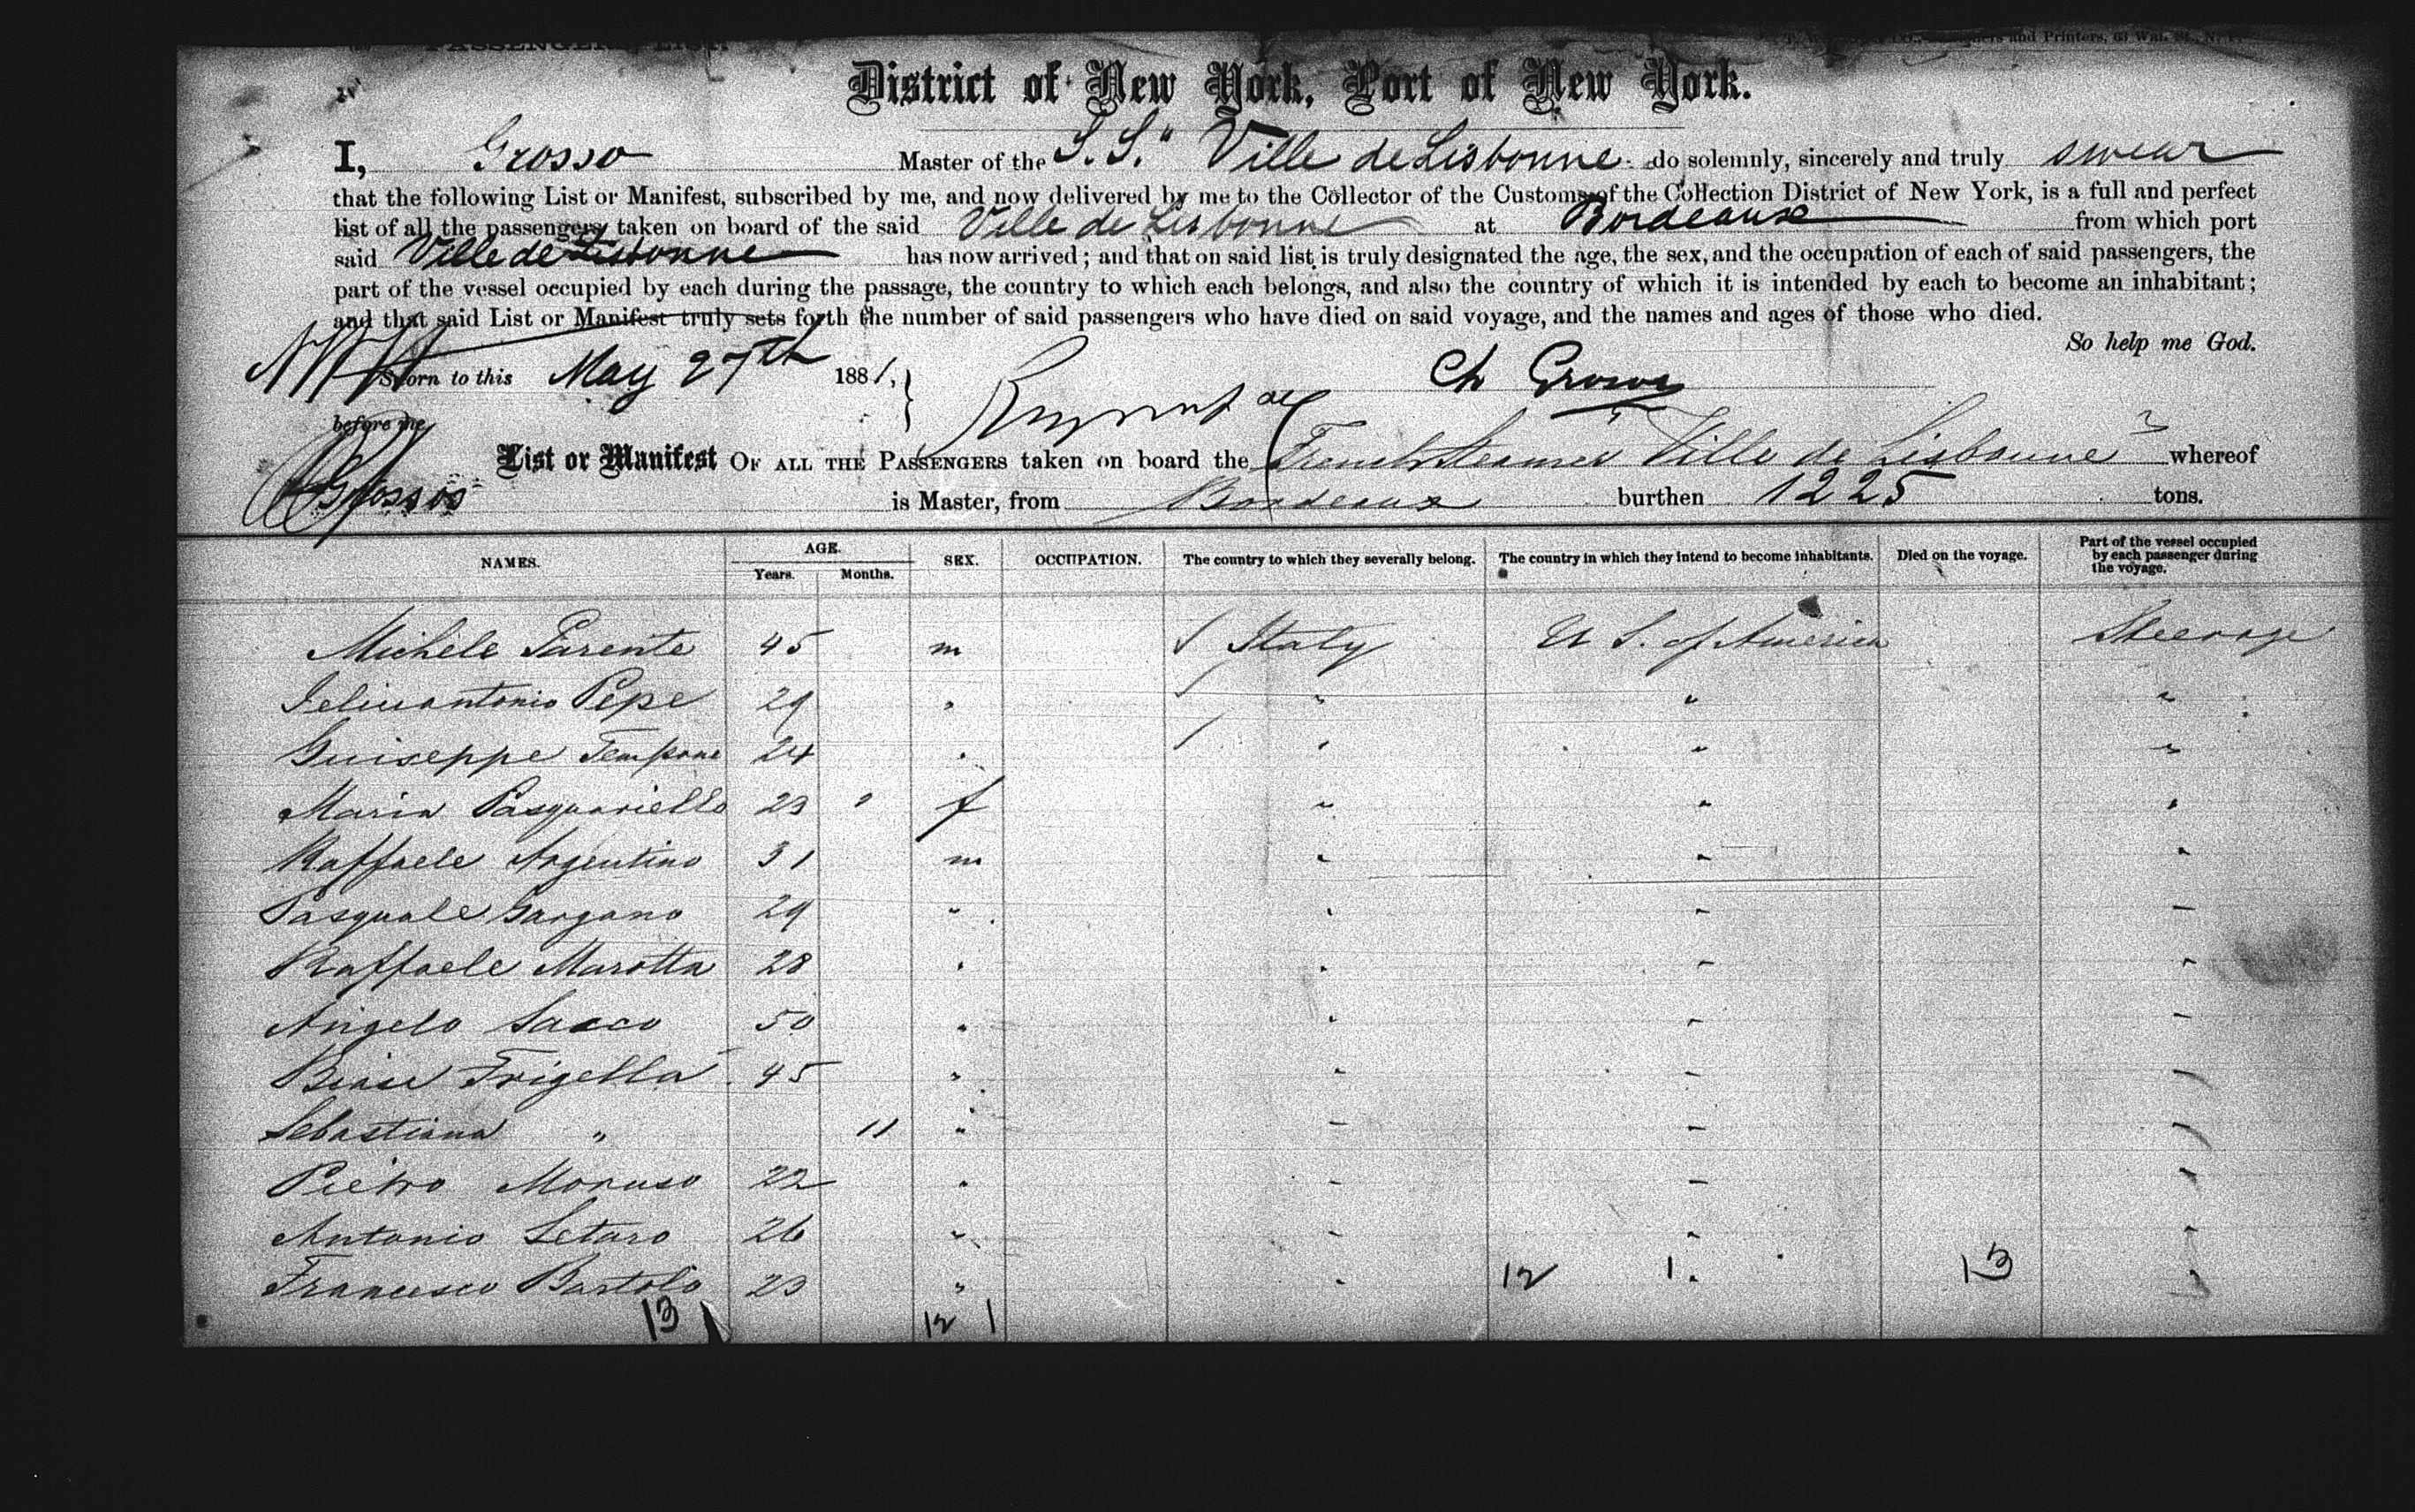 PASSENGER LIST.
District of New York, Port of New York.
I, Grosso Master of the S.S." Ville de Lisbonne do solemnly, sincerely and truly swear
that the following List or Manifest, subscribed by me, and now delivered by me to the Collector of the Customs of the Collection District of New York, is a full and perfect
list of all the passengers taken on board of the said Ville de Lisbonne at Bordeaux from which port
said Ville de Lisbonne has now arrived; and that on said list is truly designated the age, the sex, and the occupation of each of said passengers, the
part of the vessel occupied by each during the passage, the country to which each belongs, and also the country of which it is intended by each to become an inhabitant;
and that said List or Manifest truly sets forth the number of said passengers who have died on said voyage, and the names and ages of those who died.
So help me God.
Sworn to this May 27th 1881,
before me
List or Manifest OF ALL THE PASSENGERS taken on board the French Steamer Ville de Lisbonne" whereof
is Master, from Bordeaux burthen 1225 tons.
NAMES. AGE. Years. Months. SEX. OCCUPATION. The country to which they severally belong. The country in which they intend to become inhabitants. Died on the voyage. Part of the vessel occupied by each passenger during the voyage.
Michele Parente 45 m Italy U S. of America Steerage
Pepe 29 " " " "
Guiseppe Tempone 24 " " " "
Maria Pasquariello 23 " f " " "
Raffaele Argentino 31 m " " "
Pasquale Gargano 29 " " " "
Raffaele Marotta 28 " " " "
Angelo Sacco 50 " " " "
Biase Frigella 45 " " " "
Sebastiana " 11 " " " "
Pietro Moruso 22 " " " "
Antonio Letaro 26 " " " "
Francesco Bartolo 23 " " 12 1 " 13 "
13 12 1